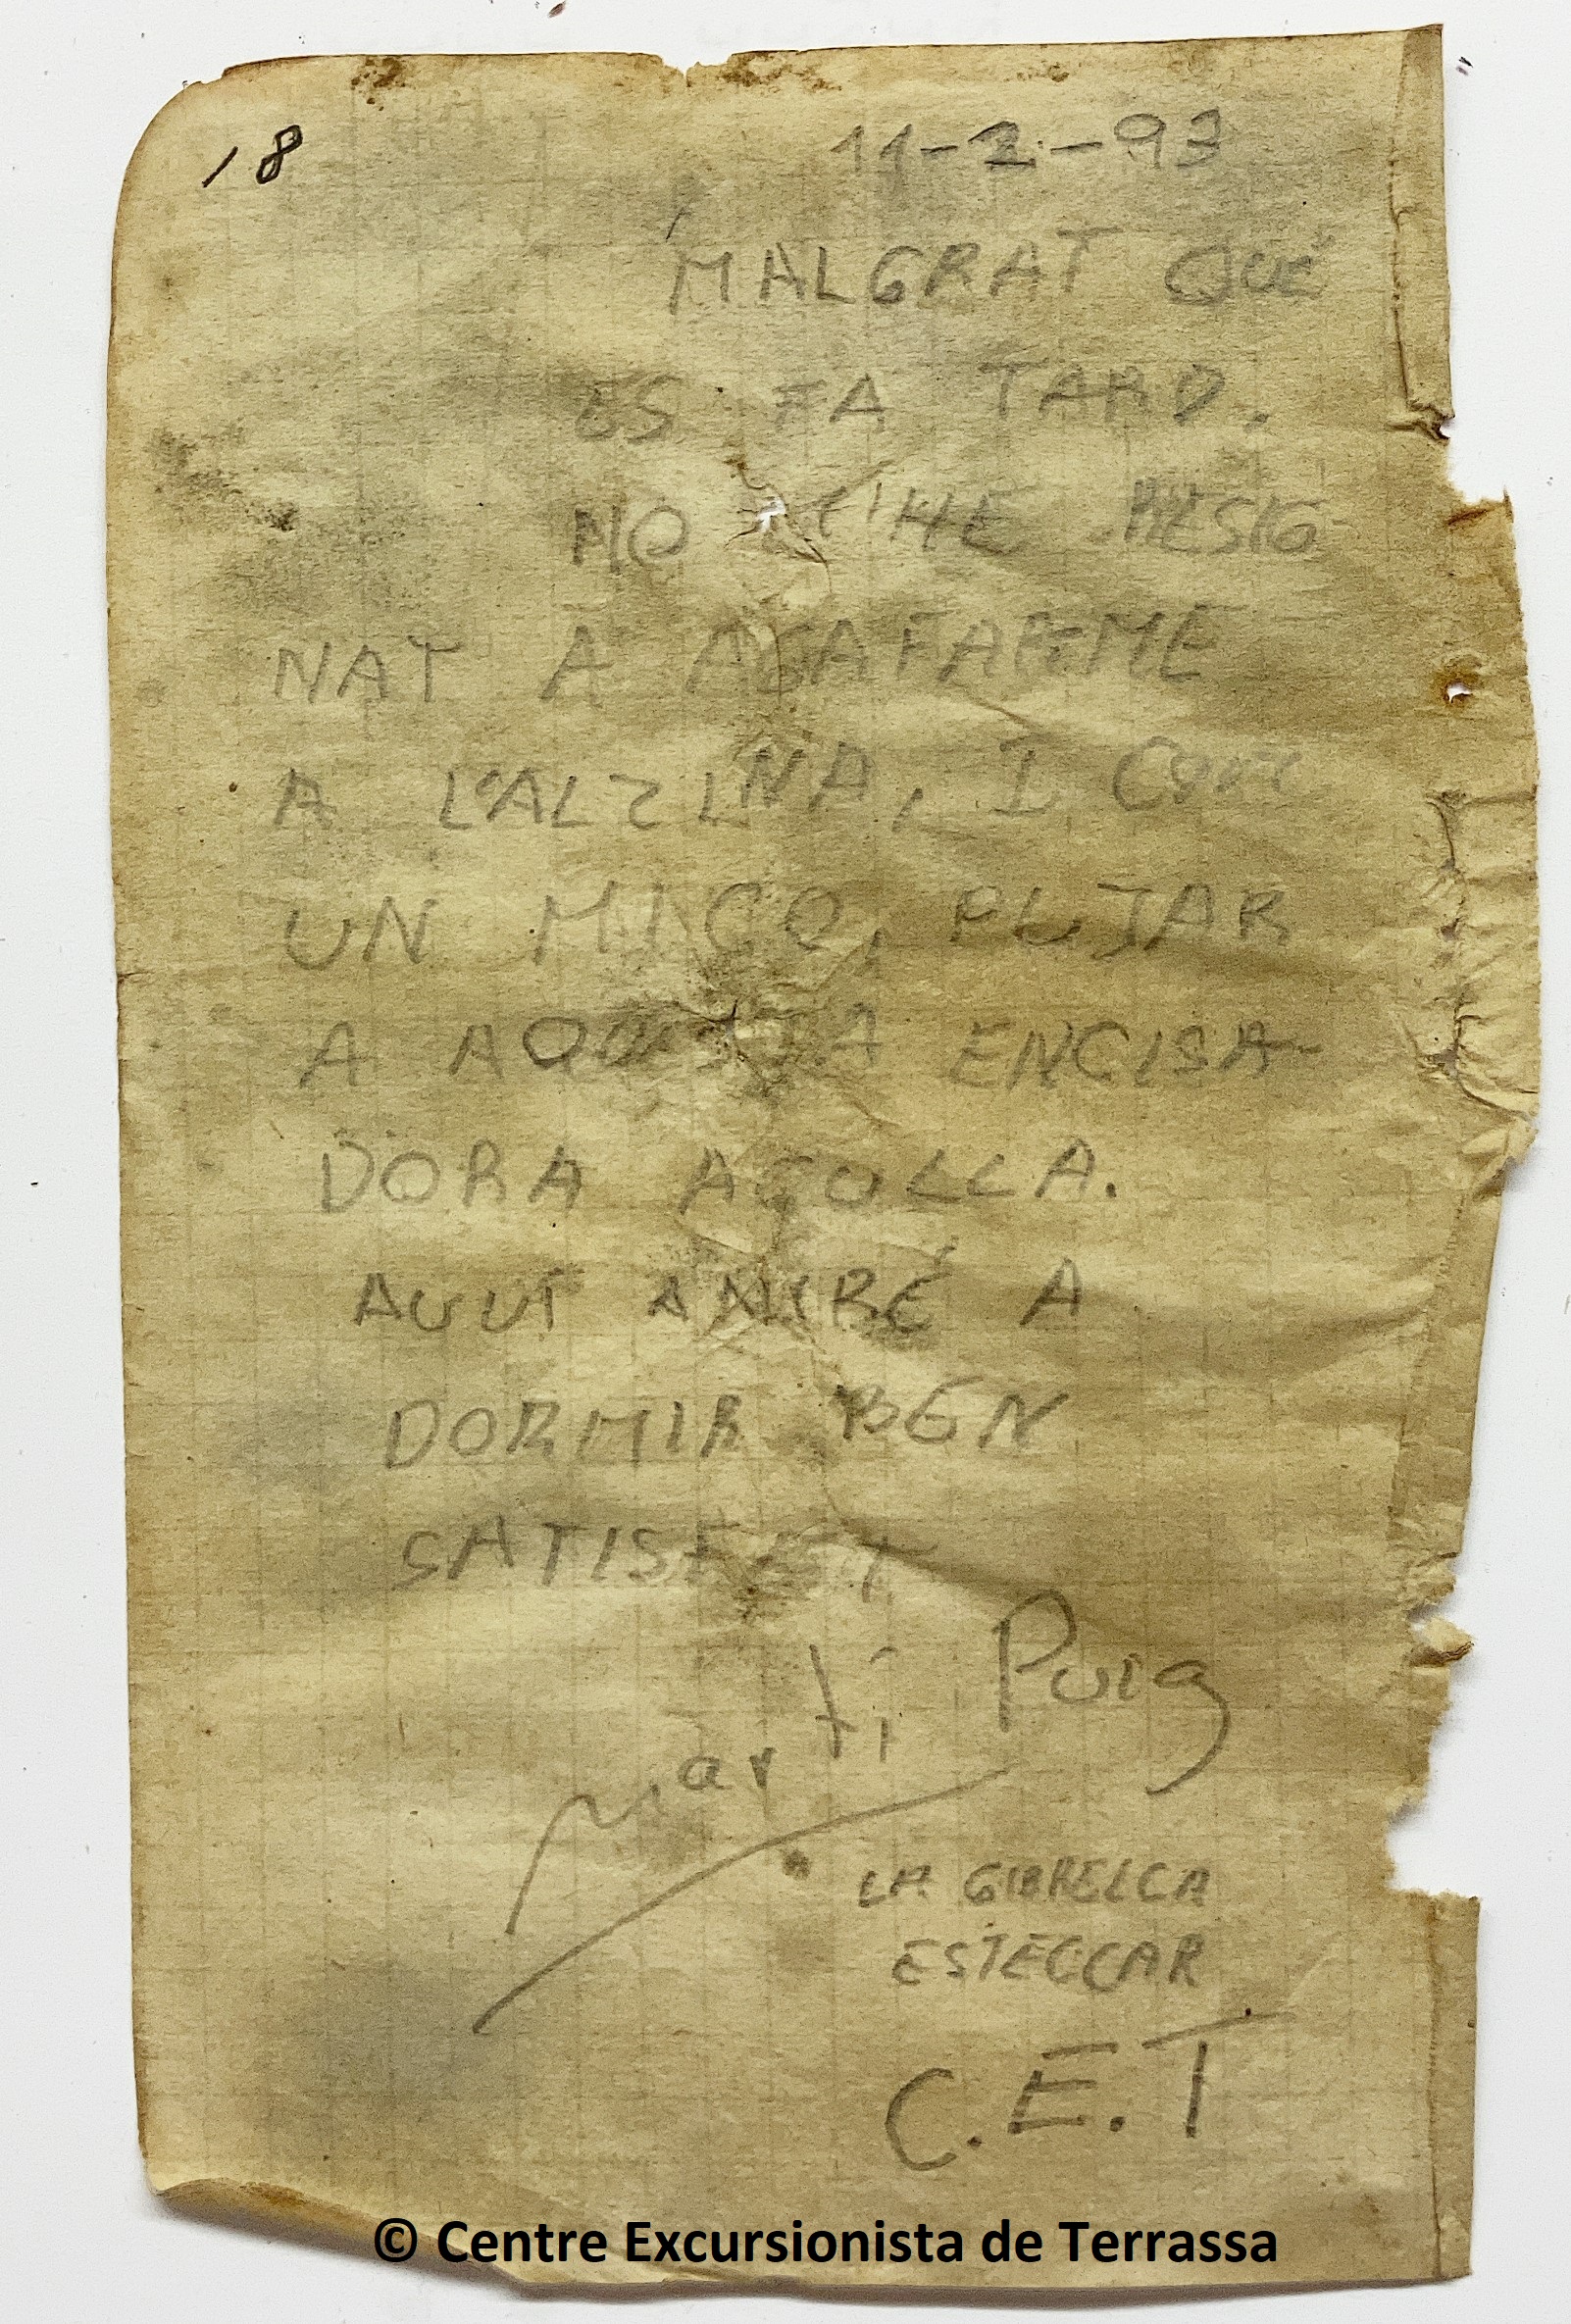 18
11-2-93
MALGRAT QUE
ES FA TARD.
NO M'HE RESIG-
NAT A AGAFARME
A L'ALZINA, I COM
UN MICO, PUJAR
A AQUESTA ENCISA-
DORA AGULLA.
AVUI ANIRÉ A
DORMIR BEN
SATISFET
Martí Puig
LA GIBRELLA
ESTELLAR
C.E.T
© Centre Excursionista de Terrassa